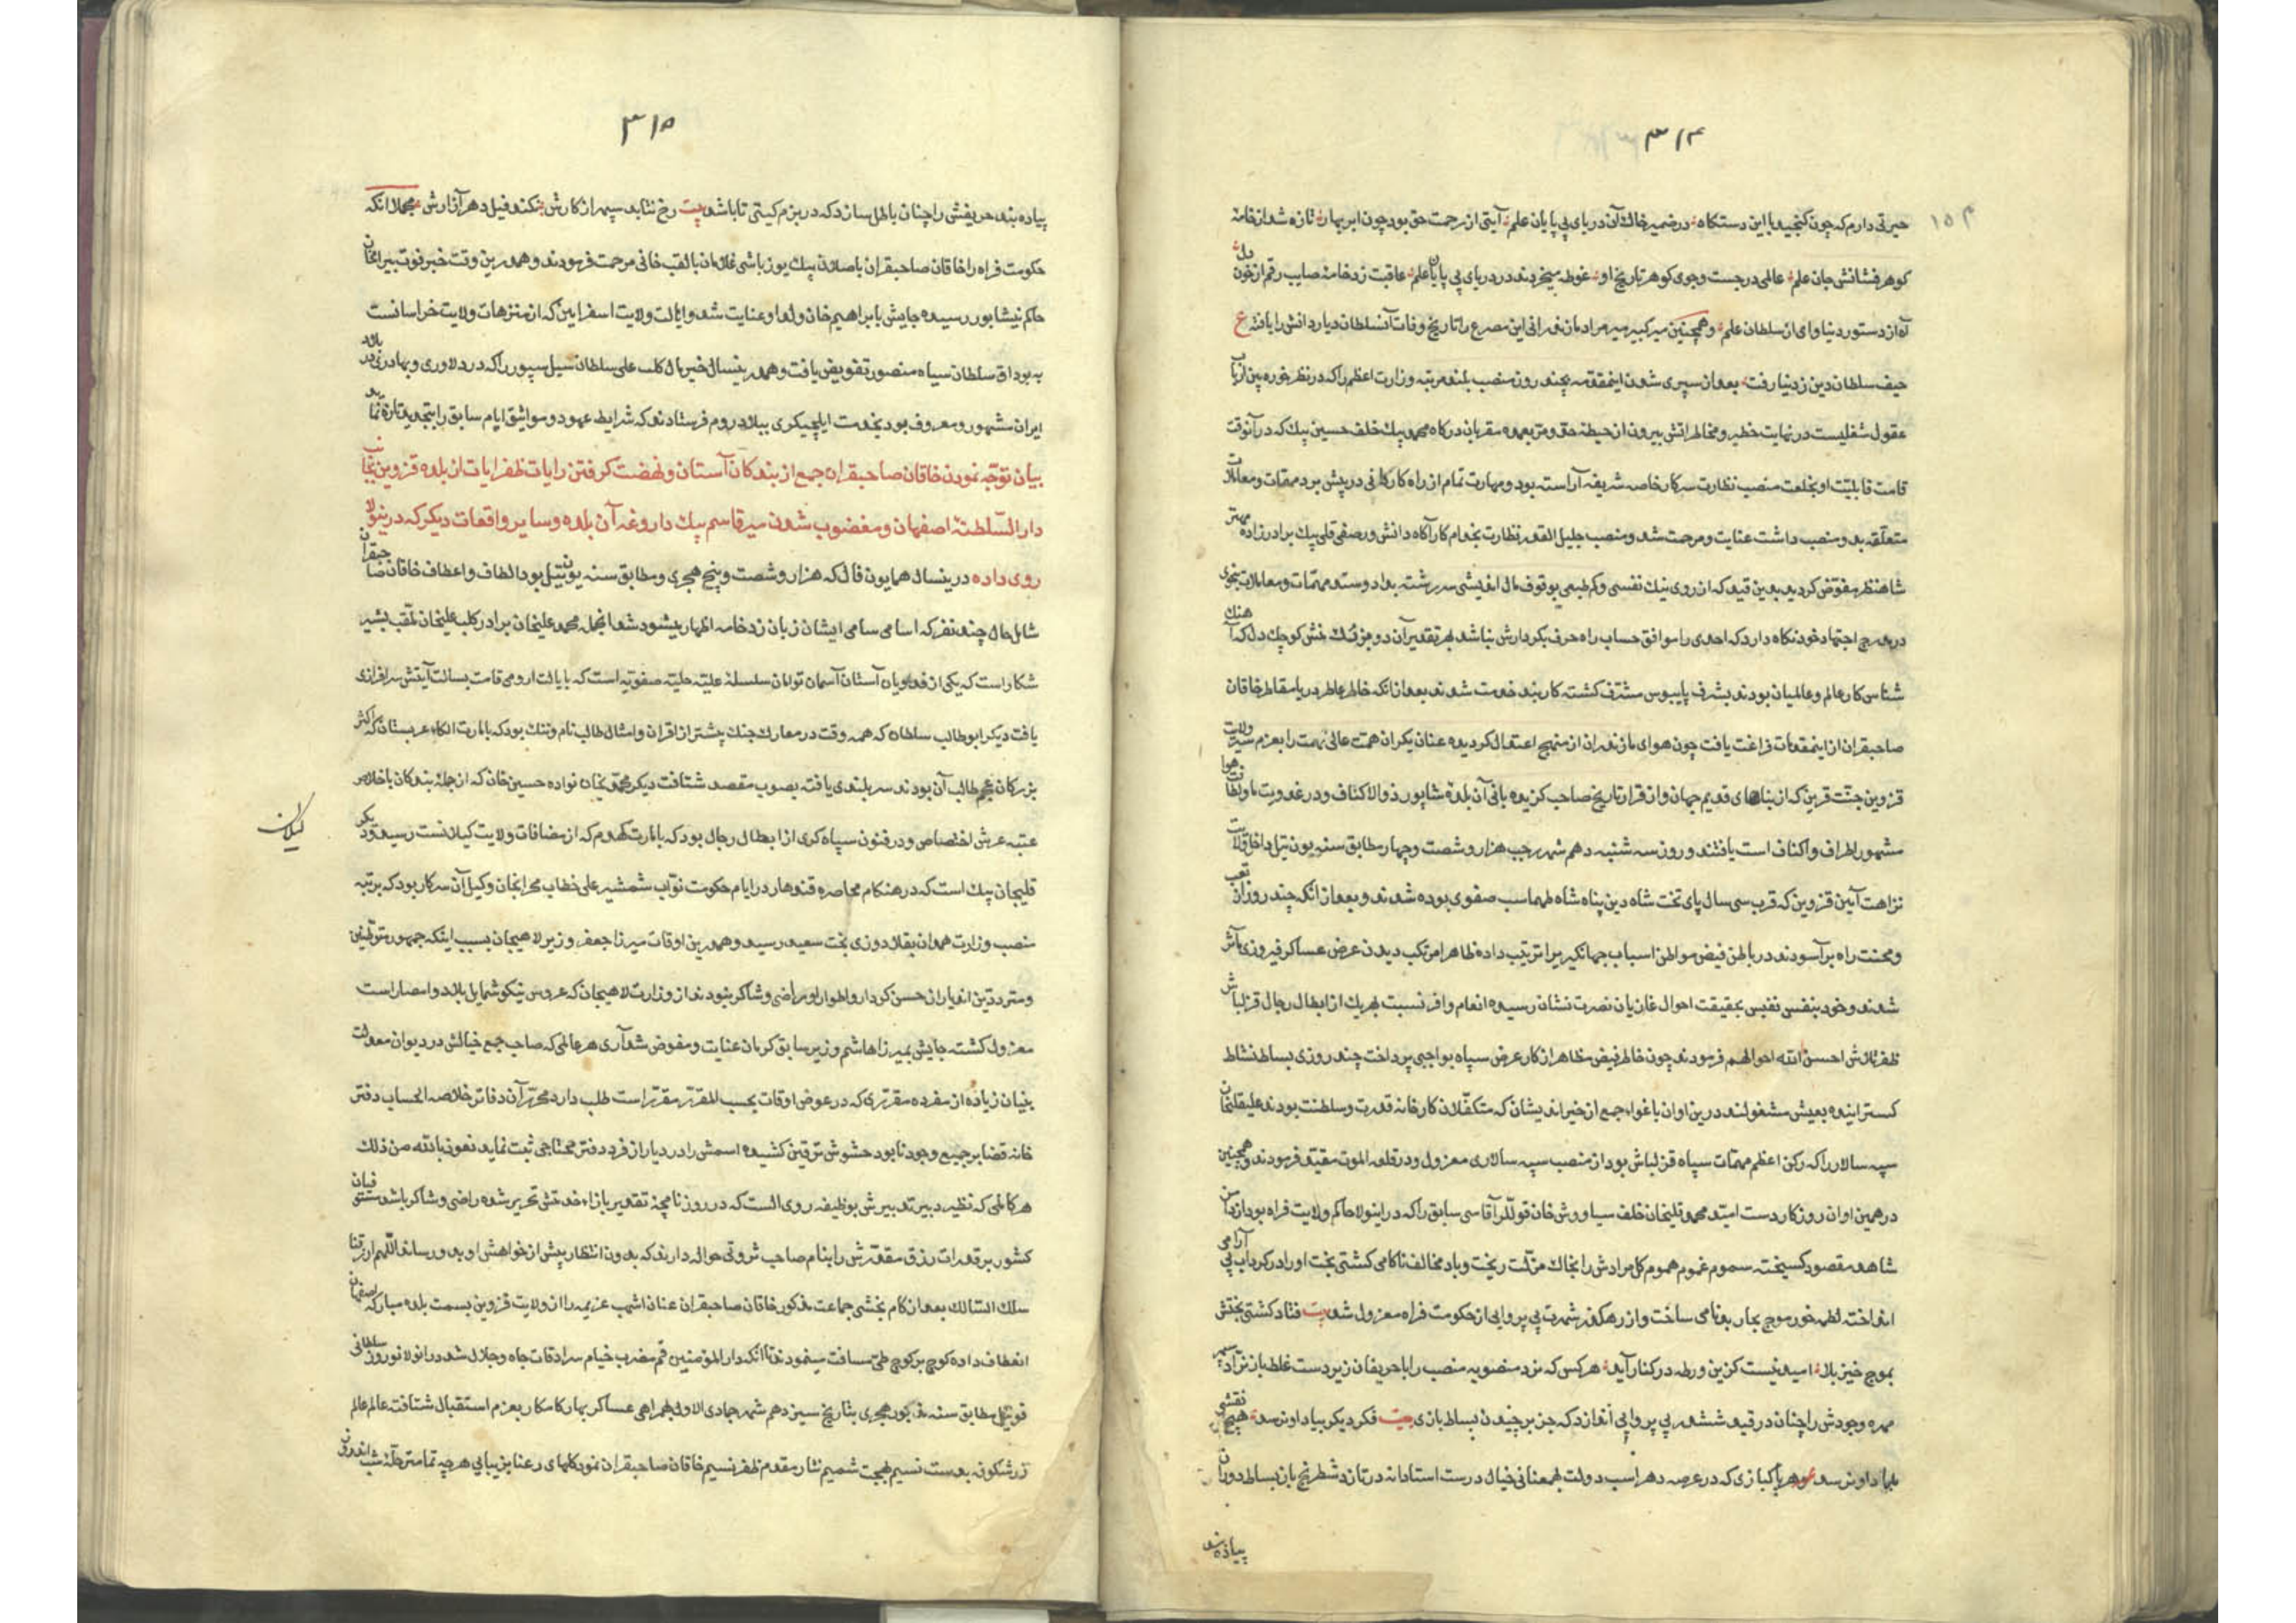 ۳۱۴
۱۵۴
حیرتی دارم که چون گنجید با این دستگاه در ضمیر خاک آن دریای بی پایان علم آیتی از رحمت حق بود چون ابر بهار تازه شد از خامۀ
کوهر فشانش جان علم عالمی در جست وجوی کوهر تاریخ او غوطه میخوردند در دریای بی پایان علم عاقبت زد خامۀ صایب رقم از خون دل
آه از دستور دنیا وای از سلطان علم و همچنین میر کبیر میر مرادمازندرانی این مصرع را تاریخ وفات آن سلطان دیار دانش را یافته ع
حیف سلطان دین ز دنیا رفت بعد از سپری شدن اینمقدمه بچند روز منصب بلند مرتبه وزارت اعظم را که در نظر خورده بین ارباب
عقول شغلیست در نهایت خطیر و مخاطراتش بیرون از حیطه حق و مر بعمده مقربان درکاه محمد بیک خلف حسین بیک که در آنوقت
قامت قابلیت او بخلعت منصب نظارت سرکار خاصه شریفه آراسته بود و مهارت تمام از راه کارکانی در پیش برد مهمات و معاملات
متعلقه بدو منصب داشت عنایت و مرحمت شد و منصب جلیل القدر نظارت بخدام کارآگاه دانش ور صفی قلی بیک برادرزاده مهتر
شاهنظر مفوض کردید بدین قید که از روی نیک نفسی و کم طمعی بوقوف مال اندیشی سررشته داد و ستد مهمات و معاملات بنحوی
در مدرج اجتهاد خود نکاه دارد که احدی را موافق حساب راه حرف بکردارش نباشد بهر تقدیر آن دو بزرک منش کوچک دل که آهنک
شناس کار عالم و عالمیان بودند بشرف پایبوس مشرف کشته کاربند خدمت شدند بعد از انکه خاطر عاطر دریا مقاطر خاقان
صاحبقران از اینمقدمات فراغت یافت چون هوای مازندران از منهج اعتدال کردیده عنان یکران همت عالی نهمت را بعزم سیر ولایت
قزوین جنت قرین که از بناهای قدیم جهان و از قرار تاریخ صاحب کزیده بانی آن بلده شاپور ذوالاکتاف و در عذوبت ماء و لطافت هوا
مشهور اطراف و اکناف است یافتند و روز سه شنبه دهم شهر رجب هزار و شصت و چهار مطابق سنه یونت ئیل داخل ولایت
نزاهت آیین قزوین که قرب سی سال پای تخت شاه دین پناه شاه طهماسب صفوی بوده شدند و بعد از انکه چند روز از تعب
و محنت راه برآسودند در باطن فیض مواطن اسباب جهانکیری را ترتیب داده ظاهرا مرتکب دیدن عرض عساکر فیروزی مآثر
شدند و خود بنفس نفیس بحقیقت احوال غازیان نصرت نشان رسیده انعام وافر نسبت بهر یک از ابطال رجال قزلباش
ظفر تلاش احسن الله احوالهم فرمودند چون خاطر فیض مظاهر از کار عرض سپاه بواجبی پرداخت چند روزی بساط نشاط
کسترانیده بعیش مشغولند درین اوان باغواء جمع از خیر اندیشان که متکفلان کارخانه قدرت و سلطنت بودند علیقلیخان
سپه سالار را که رکن اعظم مهمات سپاه قزلباش بود از منصب سپه سالاری معزول و در قلعه الموت مقید فرمودند و همچنین
در همین اوان روزکار دست امید محمد قلیخان خلف سیاووش خان قوللرآقاسی سابق را که در اینولا حاکم ولایت فراه بود از دامن
شاهد مقصود کسیخته سموم غموم هموم کل مرادش را بخاک مذلت ریخت و باد مخالف ناکامی کشتی بخت او را در کرداب بی آرامی
انداخته لطمه خور موج بحار بدنامی ساخت و از رهکذر شهرت بی پروایی از حکومت فراه معزول شد بیت فتاد کشتی بختش
بموج خیز بلا امید نیست کزین ورطه در کنار آید هر کس که نرد منصوبه منصب را با حریفان زیردست غلط باز نزاد سپهر
مهره وجودش را چنان در قید ششدر بی پروایی اندازد که جز برچیدن بساط بازی بیت فکر دیکر بیاد او نرسد هیچ نقشی
بداد او نرسد هر پاکبازی که در عرصه دهر اسب دولت بهمعنانی خیال درست استادانه در تازد شطرنج باز بساط دوران
پیاده بند
۳۱۵
پیاده بند حریفش را چنان باطل سازد که در بزم کیتی تا باشد بیت رخ نتابد سپهر از کارش نکند فیل دهر آزارش مجملا انکه
حکومت فراه را خاقان صاحبقران باصلان بیک یوزباشی غلامان بالقب خانی مرحمت فرمودند و همدرین وقت خبر فوت بیرامخان
حاکم نیشابور رسیده جایش بابراهیم خان ولد او عنایت شد و ایالت ولایت اسفراین که از منتزهات ولایت خراسانست
به بوداق سلطان سیاه منصور تفویض یافت و همدرینسال خیر مال کلب علی سلطان سیل سپور را که در دلاوری و بهادری در بلاد
ایران مشهور و معروف بود بخدمت ایلچیکری ببلاد روم فرستادند که شرایط عهود و مواثیق ایام سابق را بتجدید تازه نماید
بیان توجه نمودن خاقان صاحبقران جمع از بندکان آستان و نهضت کرفتن رایات ظفر آیات از بلده قزوین بجانب
دار السلطنۀ اصفهان و مغضوب شدن میر قاسم بیک داروغه آن بلده و سایر واقعات دیکر که درینولا
روی داده درینسال همایون فال که هزار و شصت و پنج هجری و مطابق سنه یونت ئیل بود الطاف و اعطاف خاقان صاحبقران
شامل حال چند نفر که اسامی سامی ایشان زبان زد خامه اظهار میشود شد از انجمله محمد علیخان برادر کلب علیخان ملقب بشیر
شکار است که یکی از فدویان آستان آسمان توامان سلسله علیه جلیه صفویه است که بایالت ارومی قامت بسالت آیتش سرافرازی
یافت دیکر ابوطالب سلطان که همه وقت در معارک جنک پیشتر از اقران و امثال طالب نام و ننک بود که بامارت الکاء عربستان که اکثر
بزرکان عجم طالب آن بودند سربلندی یافته بصوب مقصد شتافت دیکر محمدیخان نواده حسین خان که از جمله بندکان با خلاص
عتبه عرش اختصاص و در فنون سپاه کری از ابطال رجال بود که بامارت کهدم که از مضافات ولایت کیلانست رسید و دیکر
کیلان
قلیجان بیک است که در هنکام محاصره قندهار در ایام حکومت نواب شمشیر علی خطاب محرابخان وکیل آن سرکار بود که برتبه
منصب وزارت همدان بقلادوزی بخت سعید رسید و همدرین اوقات میرزا جعفر وزیر لاهیجان بسبب اینکه جمهور متوطنین
و مترددین اندیار از حسن کردار و اطوار او راضی و شاکر نبودند از وزارت لاهیجان که عروس نیکو شمایل بلاد و امصار است
معزول کشته جایش بمیرزا هاشم وزیر سابق کرمان عنایت و مفوض شد آری هر عالمی که صاحب جمع خیالش در دیوان معدلت
بنیان زیاده از مفرده مقرری که در عوض اوقات بحسب المقرر مقرر است طلب دارد محرر آن دفاتر خلاصه الحساب دفتر
خانه قضا بر جمیع وجود نابود حشوش ترقین کشیده اسمش را در دیار از فرد دفتر محتاجی ثبت نماید نعوذ بالله من ذلک
هر کاملی که نظیر دبیر تدبیرش بوظیفه روی الست که در روزنامچه تقدیر بازاء خدمتش تحریر شده راضی و شاکر باشد مستوفیان
کشور بر قدرات رزق مقدرش را بنام صاحب ثروتی حواله دارند که بدون انتظار پیش از خواهش او بدو رساند اللهم ارزقنا
سلک السالک بعد از کام بخشی جماعت مذکور خاقان صاحبقران عنان اشهب عزیمه را از ولایت قزوین بسمت بلده مبارکه اصفهان
انعطاف داده کوچ بر کوچ طی مسافت مینمودند تا انکه دار المومنین قم مضرب خیام سرادقات جاه و جلال شد در انولا نوروز سلطانی
قوی ئیل مطابق سنه مذکور هجری بتاریخ سیزدهم شهر جمادی الاول بهمراهی عساکر بهار کامکار بعزم استقبال شتافت عالم عالم
زر شکوفه بدست نسیم بهجت شمیم نثار مقدم ظفر نسیم خاقان صاحبقران نمود کلهای رعنا بزیبایی هر چه تمامتر